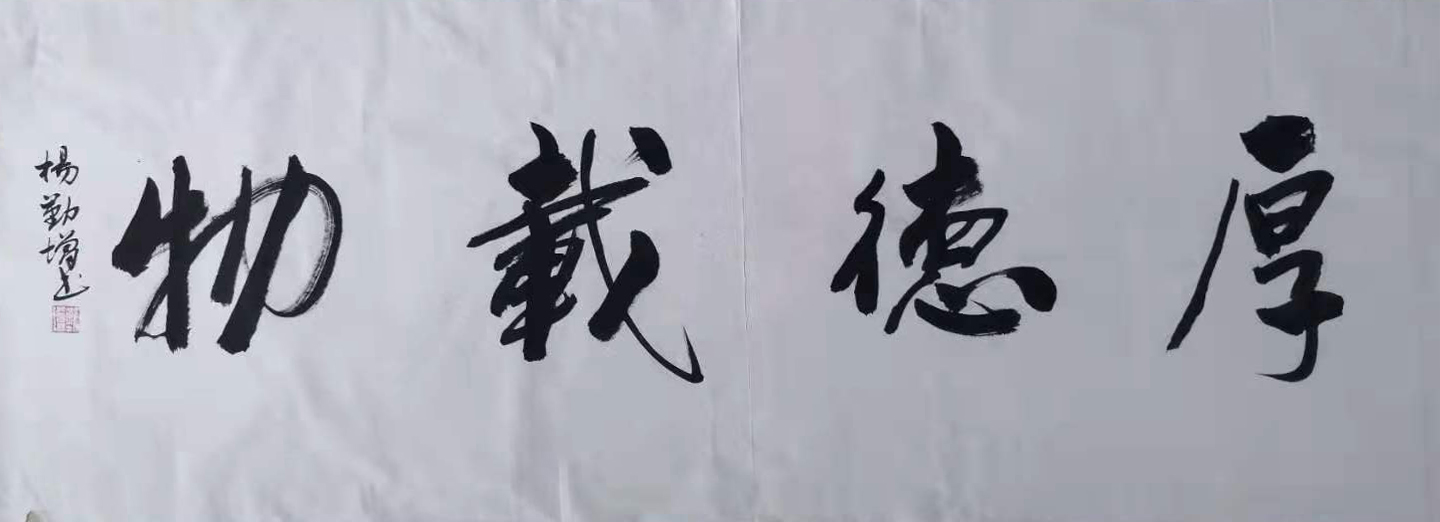 厚德載物
楊勤增书